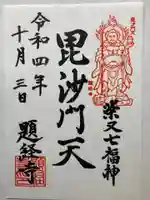 柴又七福神
毘沙門天
令和四年
十月三日
題経寺